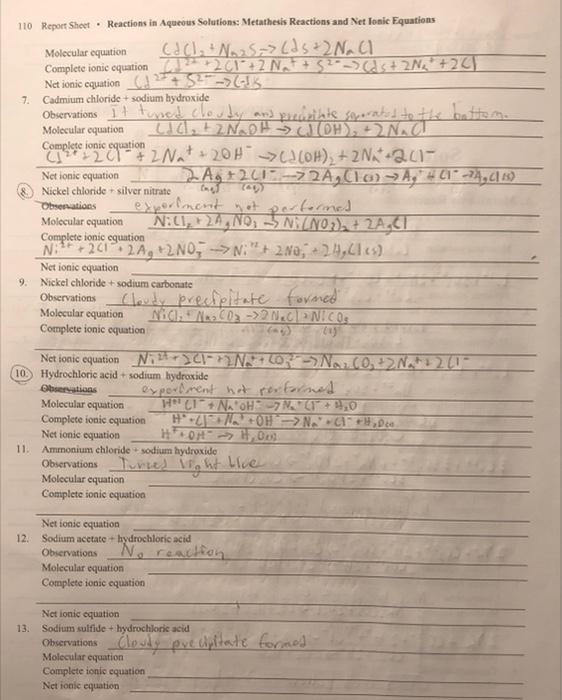 110 Report Sheet • Reactions in Aqueous Solutions: Metathesis Reactions and Net Ionic Equations
Molecular equation CdCl₂ + Na₂S → CdS + 2NaCl
Complete ionic equation Cd²⁺ + 2Cl⁻ + 2Na⁺ + S²⁻ → CdS + 2Na⁺ + 2Cl
Net ionic equation Cd²⁺ + S²⁻ → CdS
7. Cadmium chloride + sodium hydroxide
Observations It turned cloudy and precipitate separated to the bottom.
Molecular equation CdCl₂ + 2NaOH → Cd(OH)₂ + 2NaCl
Complete ionic equation
Cd²⁺ + 2Cl⁻ + 2Na⁺ + 2OH⁻ → Cd(OH)₂ + 2Na⁺ + 2Cl⁻
Net ionic equation 2Ag + 2Cl⁻ → 2AgCl(s) → Ag⁺ + Cl⁻ → AgCl(s)
(aq) (aq)
8. Nickel chloride + silver nitrate
Observations experiment not performed
Molecular equation NiCl₂ + 2AgNO₃ → Ni(NO₃)₂ + 2AgCl
Complete ionic equation
Ni²⁺ + 2Cl⁻ + 2Ag + 2NO₃⁻ → Ni⁺² + 2NO₃⁻ + 2AgCl(s)
Net ionic equation
9. Nickel chloride + sodium carbonate
Observations Cloudy precipitate formed
Molecular equation NiCl₂ + Na₂CO₃ → 2NaCl + NiCO₃
Complete ionic equation (aq) (s)
Net ionic equation Ni²⁺ + 2Cl⁻ + 2Na⁺ + CO₃²⁻ → Na₂CO₃ + 2Na⁺ + 2Cl⁻
10. Hydrochloric acid + sodium hydroxide
Observations experiment not performed
Molecular equation H⁺Cl⁻ + Na⁺OH⁻ → Na⁺Cl⁻ + H₂O
Complete ionic equation H⁺ + Cl⁻ + Na⁺ + OH⁻ → Na⁺ + Cl⁻ + H₂O(l)
Net ionic equation H⁺ + OH⁻ → H₂O(l)
11. Ammonium chloride + sodium hydroxide
Observations Turned light blue
Molecular equation
Complete ionic equation
Net ionic equation
12. Sodium acetate + hydrochloric acid
Observations No reaction
Molecular equation
Complete ionic equation
Net ionic equation
13. Sodium sulfide + hydrochloric acid
Observations Cloudy precipitate formed
Molecular equation
Complete ionic equation
Net ionic equation